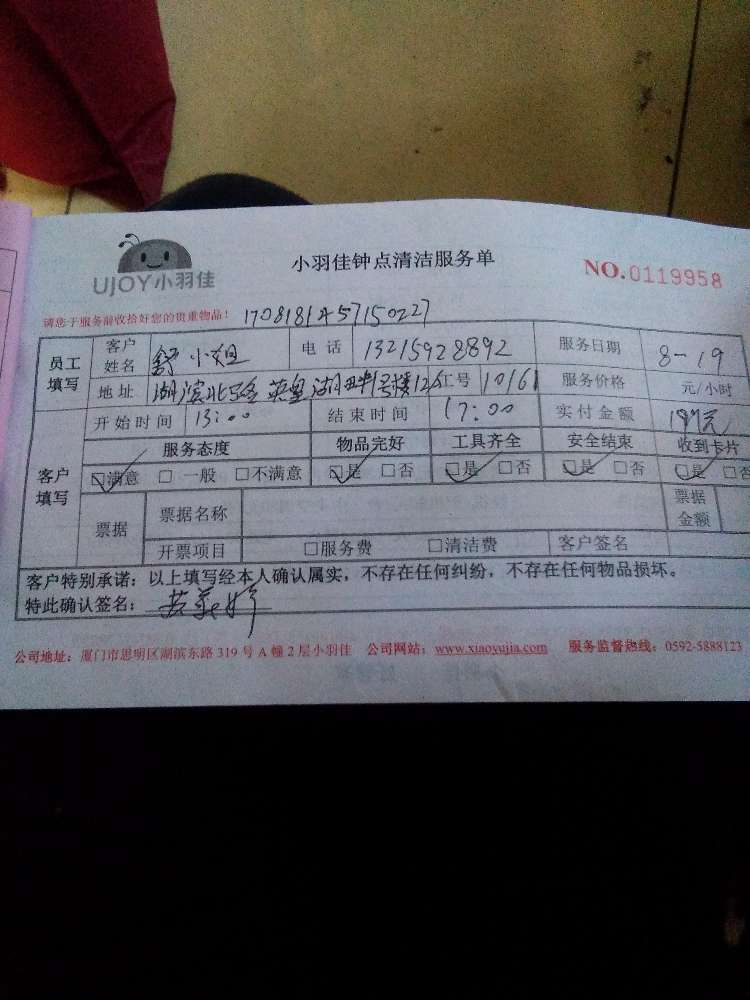 UJOY小羽佳
小羽佳钟点清洁服务单
NO.0119958
请您于服务前收拾好您的贵重物品!
员工填写 客户姓名 舒小姐 电话 13215928892 服务日期 8-19
地址 湖滨北路 湖畔1号楼 工号 10161 服务价格 元/小时
开始时间 13:00 结束时间 17:00 实付金额
客户填写 服务态度 物品完好 工具齐全 安全结束 收到卡片
☑满意 □一般 □不满意 ☑是 □否 ☑是 □否 ☑是 □否 ☑是 □否
票据 票据名称 票据金额
开票项目 □服务费 □清洁费 客户签名
客户特别承诺:以上填写经本人确认属实,不存在任何纠纷,不存在任何物品损坏。
特此确认签名:
公司地址:厦门市思明区湖滨东路319号A幢2层小羽佳 公司网站:www.xiaoyujia.com 服务监督热线:0592-5888123